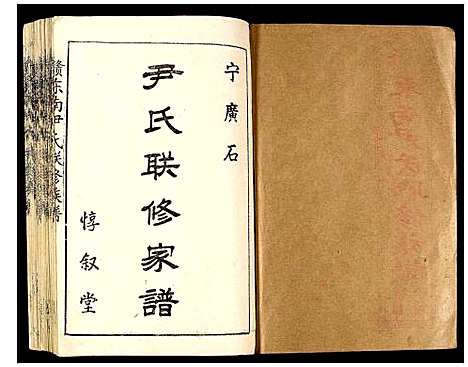 宁廣石
尹氏联修家譜
惇叙堂
赣东南尹氏联修族譜